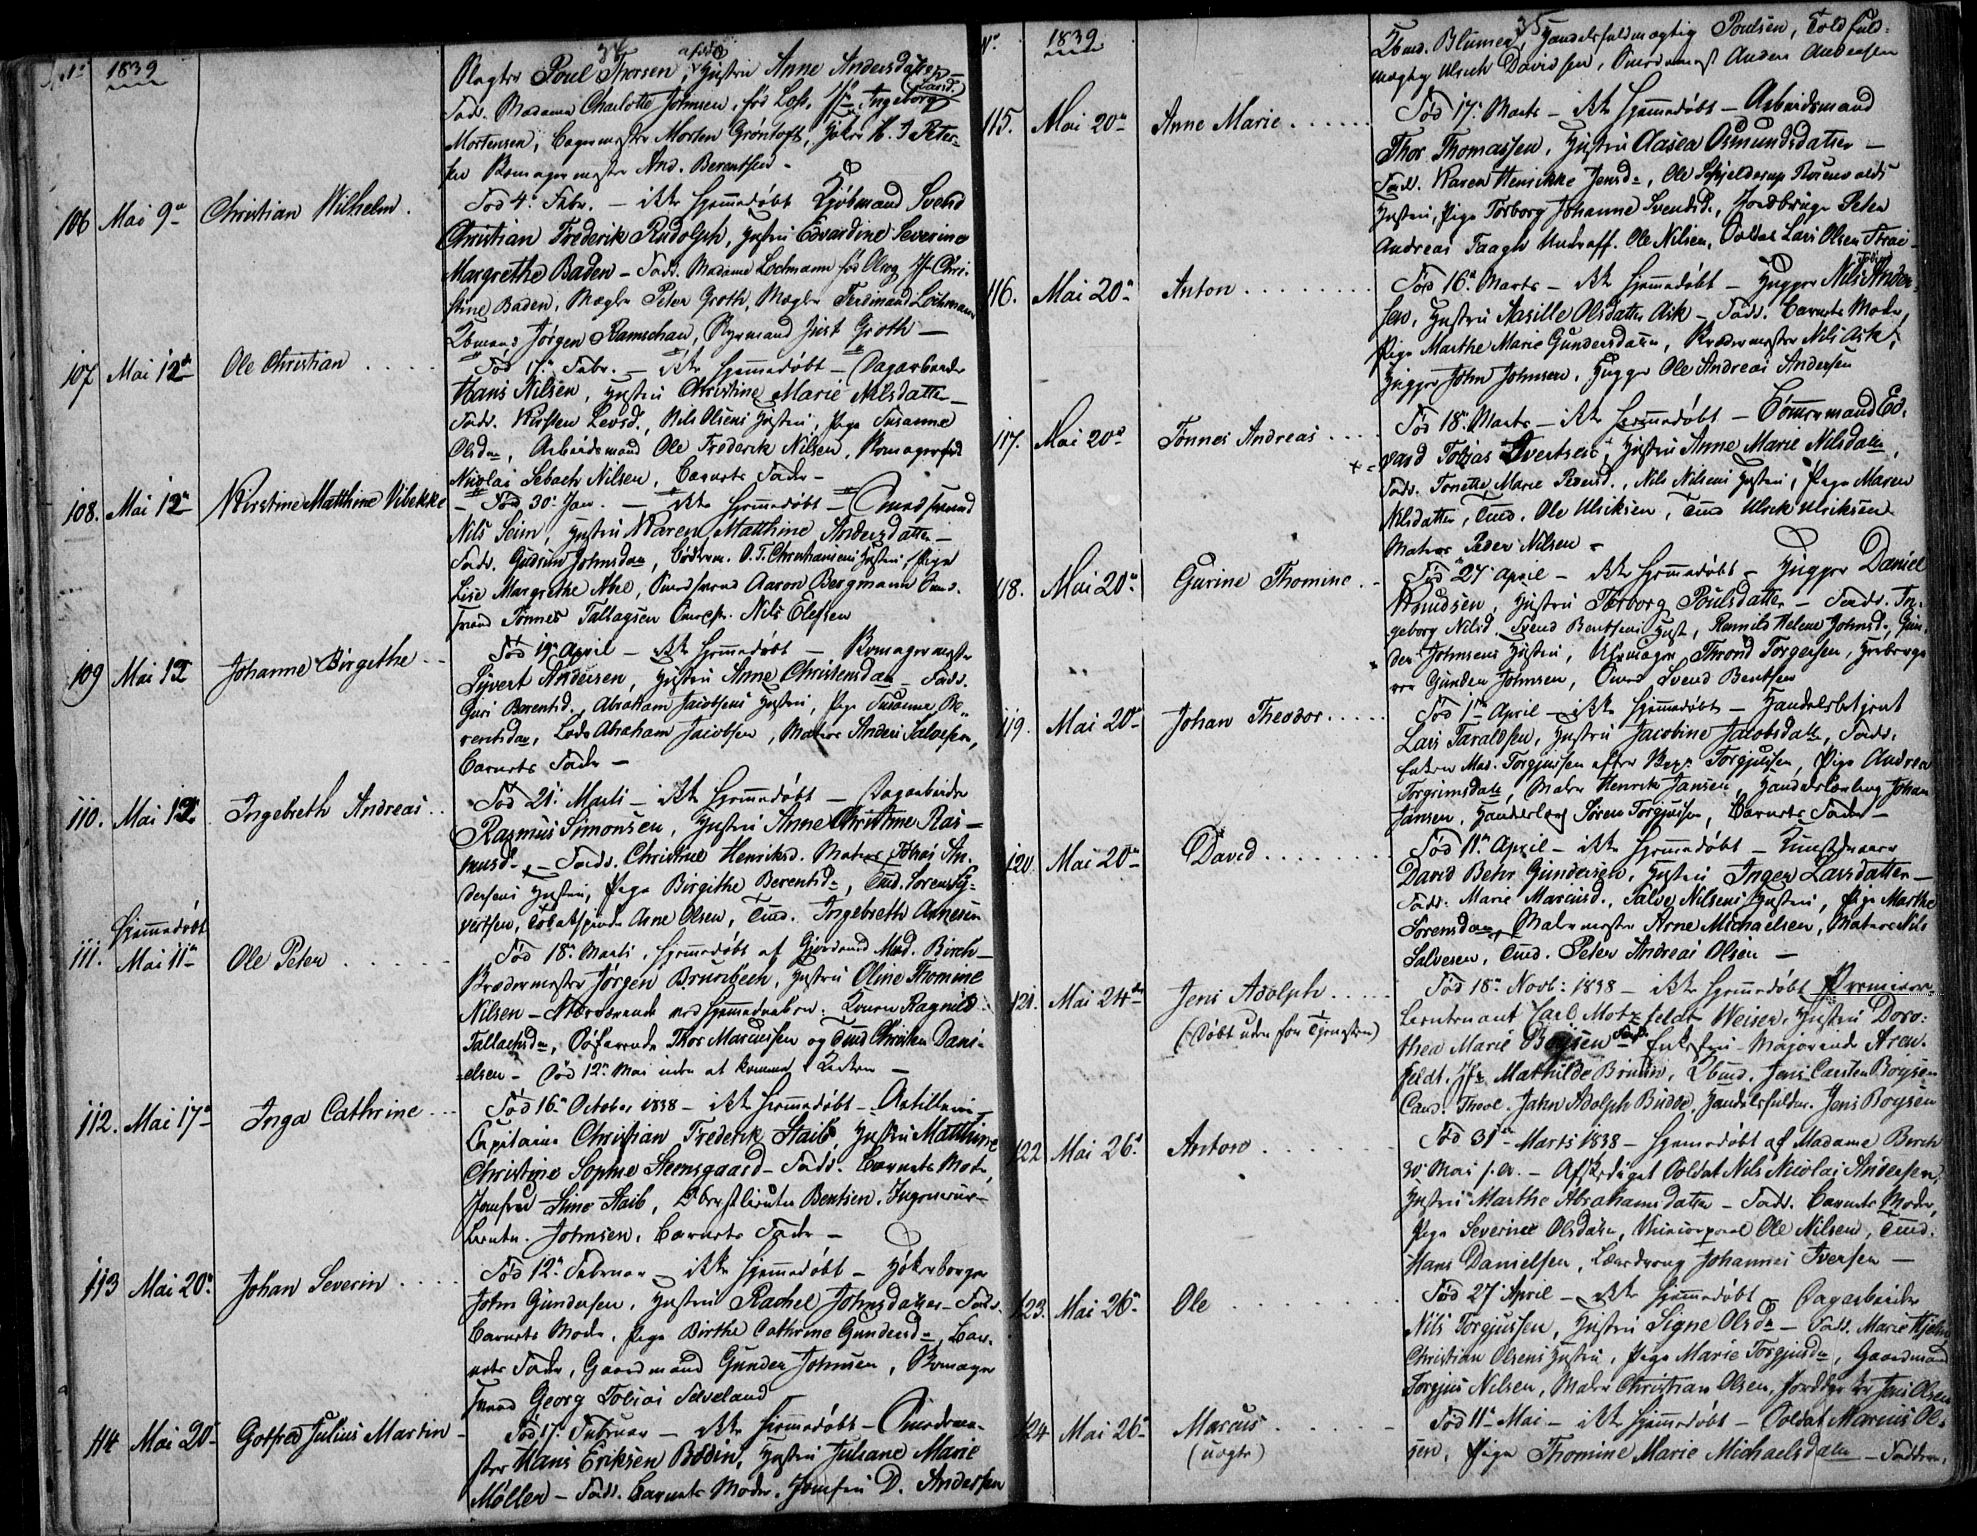 34
No 1839
Poul Thorsen, Hustru Anne Andersdatter
Fadd. Madame Charlotte Johnsen, fød Loft, Jfr. Ingeborg
Mortensen, Bagermester Morten Grøntoft,
And. Berentsen -
106 Mai 9de Christian Wilhelm.
Fød 4de Febr. - ikke hjemmedøbt Kjøbmand Svend
Christian Frederik Rudolph, Hustru Edvardine Severine
Margrethe Baden - Fadd. Madame Lochmann fød Olrog Jfr Chri-
stine Baden, Mægler Peter Groth, Mægler Ferdinand Lochmann
Jørgen Ramschau, Styrmand Just Groth -
107 Mai 12te Ole Christian ....
Fød 17de Febr. - ikke hjemmedøbt - Dagarbeider
Hans Nilsen, Hustru Christine Marie Nilsdatter -
Fadd. Kirsten Levsd., Nils Olsens Hustru, Pige Susanne
Olsdr, Arbeidsmand Ole Frederik Nilsen,
Nicolai Sebach Nilsen, Barnets Fader -
108. Mai 12te Kirstine Matthine Vibekke
- Fød 30te Jan. - ikke hjemmedøbt -
Nils Seim, Hustru Karen Matthine Andersdatter -
Fadd. Gudrun Johnsdr, O. T. Christiansens Hustru, Pige
Lise Margrethe Abel, Aaron Bergmann
Tønnes Tallagsen Nils Elefsen
109 Mai 12 Johanne Birgethe ..
Fød 19de April - ikke hjemmedøbt -
Sijvert Andersen, Hustru Anne Christensdr - Fadd.
Guri Berentsd. Abraham Jacobsens Hustru, Pige Susanne Be-
rentsdr, Lods Abraham Jacobsen, Matros Anders Salvesen,
Barnets Fader -
110. Mai 12. Ingebreth Andreas ..
Fød 21de Marti - ikke hjemmedøbt - Dagarbeider
Rasmus Simonsen, Hustru Anne Christine Ras-
musdr - Fadd. Christine Henriksd. Matros Tobias An-
dersens Hustru, Pige Birgithe Berentsdr, Tmd. Søren Sy-
vertsen, Arne Olsen, Tmd. Ingebreth Arnesen
111. Hjemmedøbt
Mai 11te Ole Peter ....
Fød 18de Marti, hjemmedøbt af Gjordemd Mad. Birch -
Jørgen Brunsbech, Hustru Oline Thomine
Nilsen - Nærværende ved hjemmedaaben: Konen Ragnild
Tallachsdr, Søfarende Thor Marcussen og Tmd Christen Dani-
elsen - Død 12te Mai uden at komme i Kirken -
112. Mai 17de Inga Cathrine ...
Fød 16de October 1838 - ikke hjemmedøbt - Artilleri-
Capitaine Christian Frederik Staib, Hustru Matthine
Christine Sophie Steensgaard - Fadd. Barnets Moder,
Jomfrue Stine Staib, Oberstlieutn Bentzen, Ingenieur-
Lieutn. Johnsen, Barnets Fader -
113 Mai 20de Johan Severin ....
Fød 12te Februar - ikke hjemmedøbt - Høkerborger
John Gundersen, Hustru Rachel Johnsdatter - Fadd.
Barnets Moder, Pige Birthe Cathrine Gundersdr, Bar-
nets Fader, Gaardmand Gunder Johnsen,
Georg Tobias Tveteland
114 Mai 20de Gotfred Julius Martin -
Fød 17de Februar - ikke hjemmedøbt -
Hans Eriksen Bodin, Hustru Juliane Marie
Møller - Fadd. Barnets Moder, Jomfru D. Andersen
35
No 1839
Blumer, Handelsfuldmægtig Poulsen, Toldfuld-
mægtig Ulrich Davidsen, Anders Andersen
115. Mai 20de Anne Marie ......
Fød 17de Marts - ikke hjemmedøbt - Arbeidsmand
Thor Thomassen, Hustru Aasea Osmundsdatter -
Fadd. Karen Henrikke Jensdr, Ole Schjelderup
Hustru, Pige Torborg Johanne Svendsd., Jordbruger Peter
Andreas Taagh Ole Nilsen, Soldat Lars Olsen
116. Mai 20de Anton ........
Fød 16de Marts - ikke hjemmedøbt - Hugger Nils Tobias Ander-
sen, Hustru Aasille Olsdatter Ask - Fadd. Barnets Moder,
Pige Marthe Marie Gundersdatter, Nils Ask,
Hugger John Johnsen, Hugger Ole Andreas Andersen
117. Mai 20de Tønnes Andreas ....
Fød 18de Marts - ikke hjemmedøbt - Tømmermand Ed-
vard Tobias Evertsen, Hustru Anne Marie Nilsdatter,
Fadd. Tonette Marie Nils Nilsens Hustru, Pige Maren
Nilsdatter, Tmd. Ole Ulriksen, Tmd Ulrik Ulriksen
Matros Peder Nilsen -
118. Mai 20de Gurine Thomine ..
Fød 27de April - ikke hjemmedøbt - Hugger Daniel
Knudsen, Hustru Torborg Poulsdatter - Fadd. In-
geborg Nilsd. Svend Bentsens Hust, Ramild Helene Johnsd., Gun-
der Johnsens Hustru, Uhrmager Thrond Torgersen,
Gunder Johnsen, Svend Bentsen
119. Mai 20de Johan Theodor .....
Fød 1ste April - ikke hjemmedøbt - Handelsbetjent
Lars Taraldsen, Hustru Jacobine Jacobsdatter, Fadd.
Enken Mad. Torgjussen efter Torgjussen, Pige Andrea
Torgrimsdatter, Maler Henrik Jansen, Johan
Jansen, Søren Torgjussen, Barnets Fader -
120 Mai 20de David .......
Fød 11te April - ikke hjemmedøbt -
David Behr Gundersen, Hustru Inger Larsdatter -
Fadd. Marie Marcusd., Salve Nilsens Hustru, Pige Marthe
Sørensdr, Malermester Arne Michaelsen, Matros Nils
Salvesen, Tmd. Peter Andreas Olsen -
121. Mai 24de Jens Adolph .....
(Døbt uden for Tjenesten)
Fød 18de Novb: 1838 - ikke hjemmedøbt Premier-
Lieutenant Carl Motzfeldt Weiser, Hustru Doro-
thea Marie Boysen - Fadd. Enkefru Majorinde Aren-
feldt, Jfr Mathilde Bruun, Kbmd. Jens Carsten Boysen
Cand. Theol. Jahn Adolph Budde, Handelsfuldm. Jens Boysen
122 Mai 26de Anton ......
Fød 31te Marts 1838 - hjemmedøbt af Madame Birch
30te Mai s. A. - Afskediget Soldat Nils Nicolai Andersen,
Hustru Marthe Abrahamsdatter - Fadd. Barnets Moder,
Pige Severine Olsdatter, Ole Nilsen, Tmd.
Hans Danielsen, Læredreng Johannes Iversen -
123. Mai 26de Ole ........
Fød 27de April - ikke hjemmedøbt Dagarbeider
Nils Torgjussen, Hustru Signe Olsdr - Fadd. Marie
Christian Olsens Hustru, Pige Marie Torgjusdr, Gaardmand
Torgjus Nilsen, Maler Christian Olsen, Jens Olsen
124 Mai 26de Marcus ......
(uægte)
Fød 11te Mai - ikke hjemmedøbt - Soldat Marcus Ol-
sen, Pige Thomine Marie Michaelsdatter - Faddere,